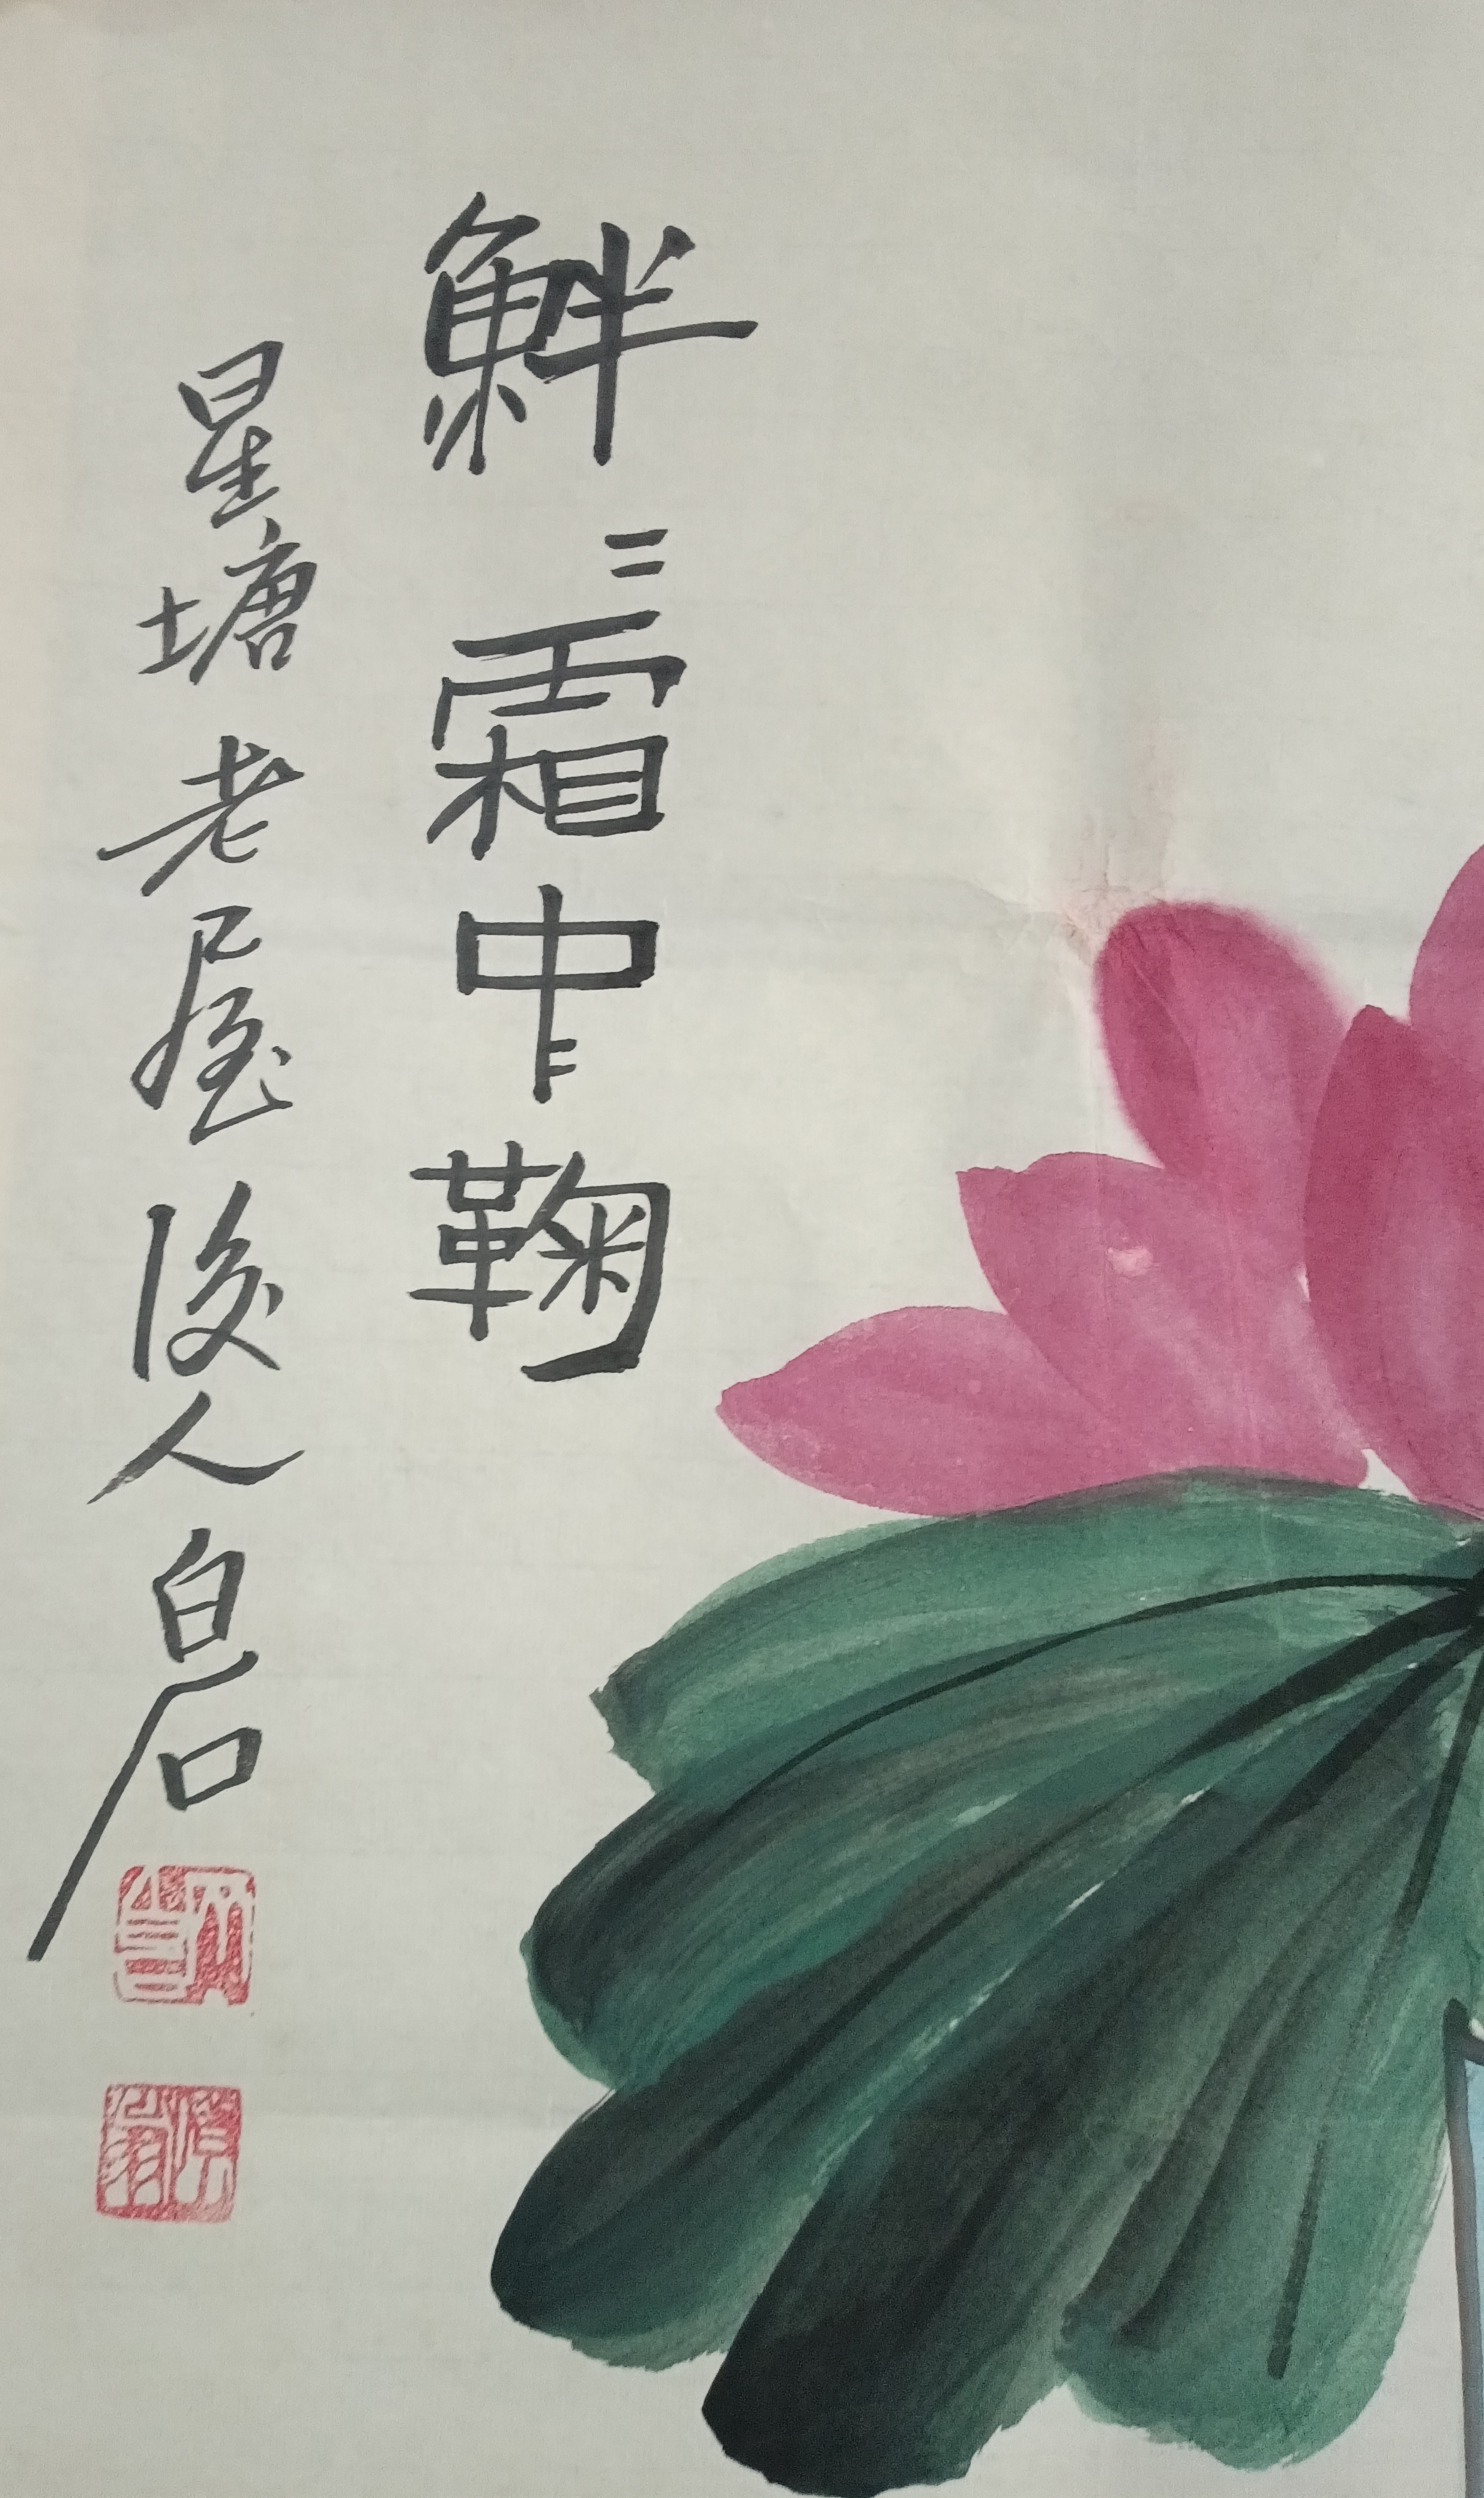 鮮=霜中鞠
星塘老屋後人白石